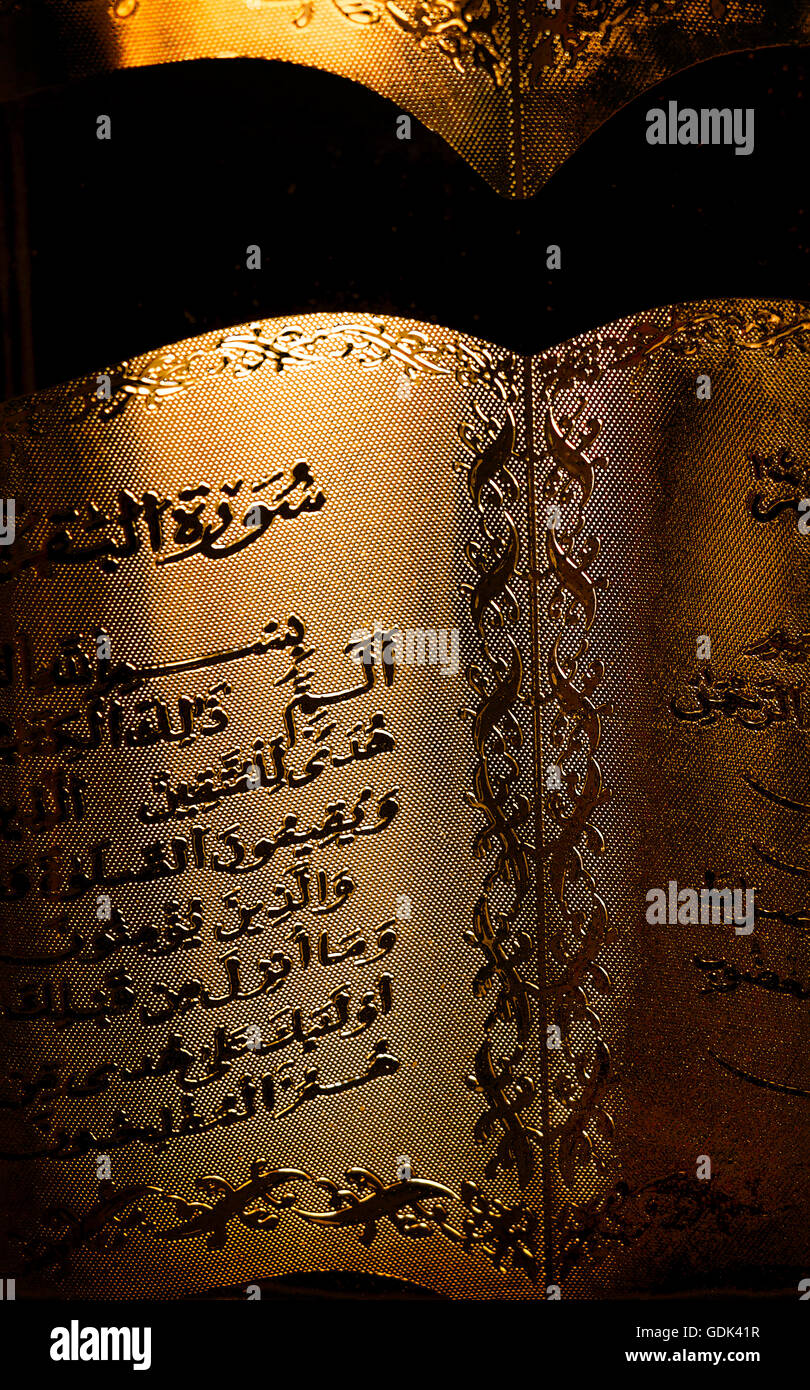 الرَّحْمٰنِ
سُورَة البَقَر
بِسْمِ اللّه
الٓمٓ ذَلِكَ الْكِتَ
هُدًى لِلْمُتَّقِينَ الَّذِي
وَيُقِيمُونَ الصَّلَوٰةَ
وَالَّذِينَ يُؤْمِنُونَ
وَمَا أُنْزِلَ مِنْ قَبْلِكَ
اُولَئِكَ عَلَى هُدًى مِنْ
هُمُ الْمُفْلِحُونَ
alamy
alamy
alamy
Image ID: GDK41R
www.alamy.com